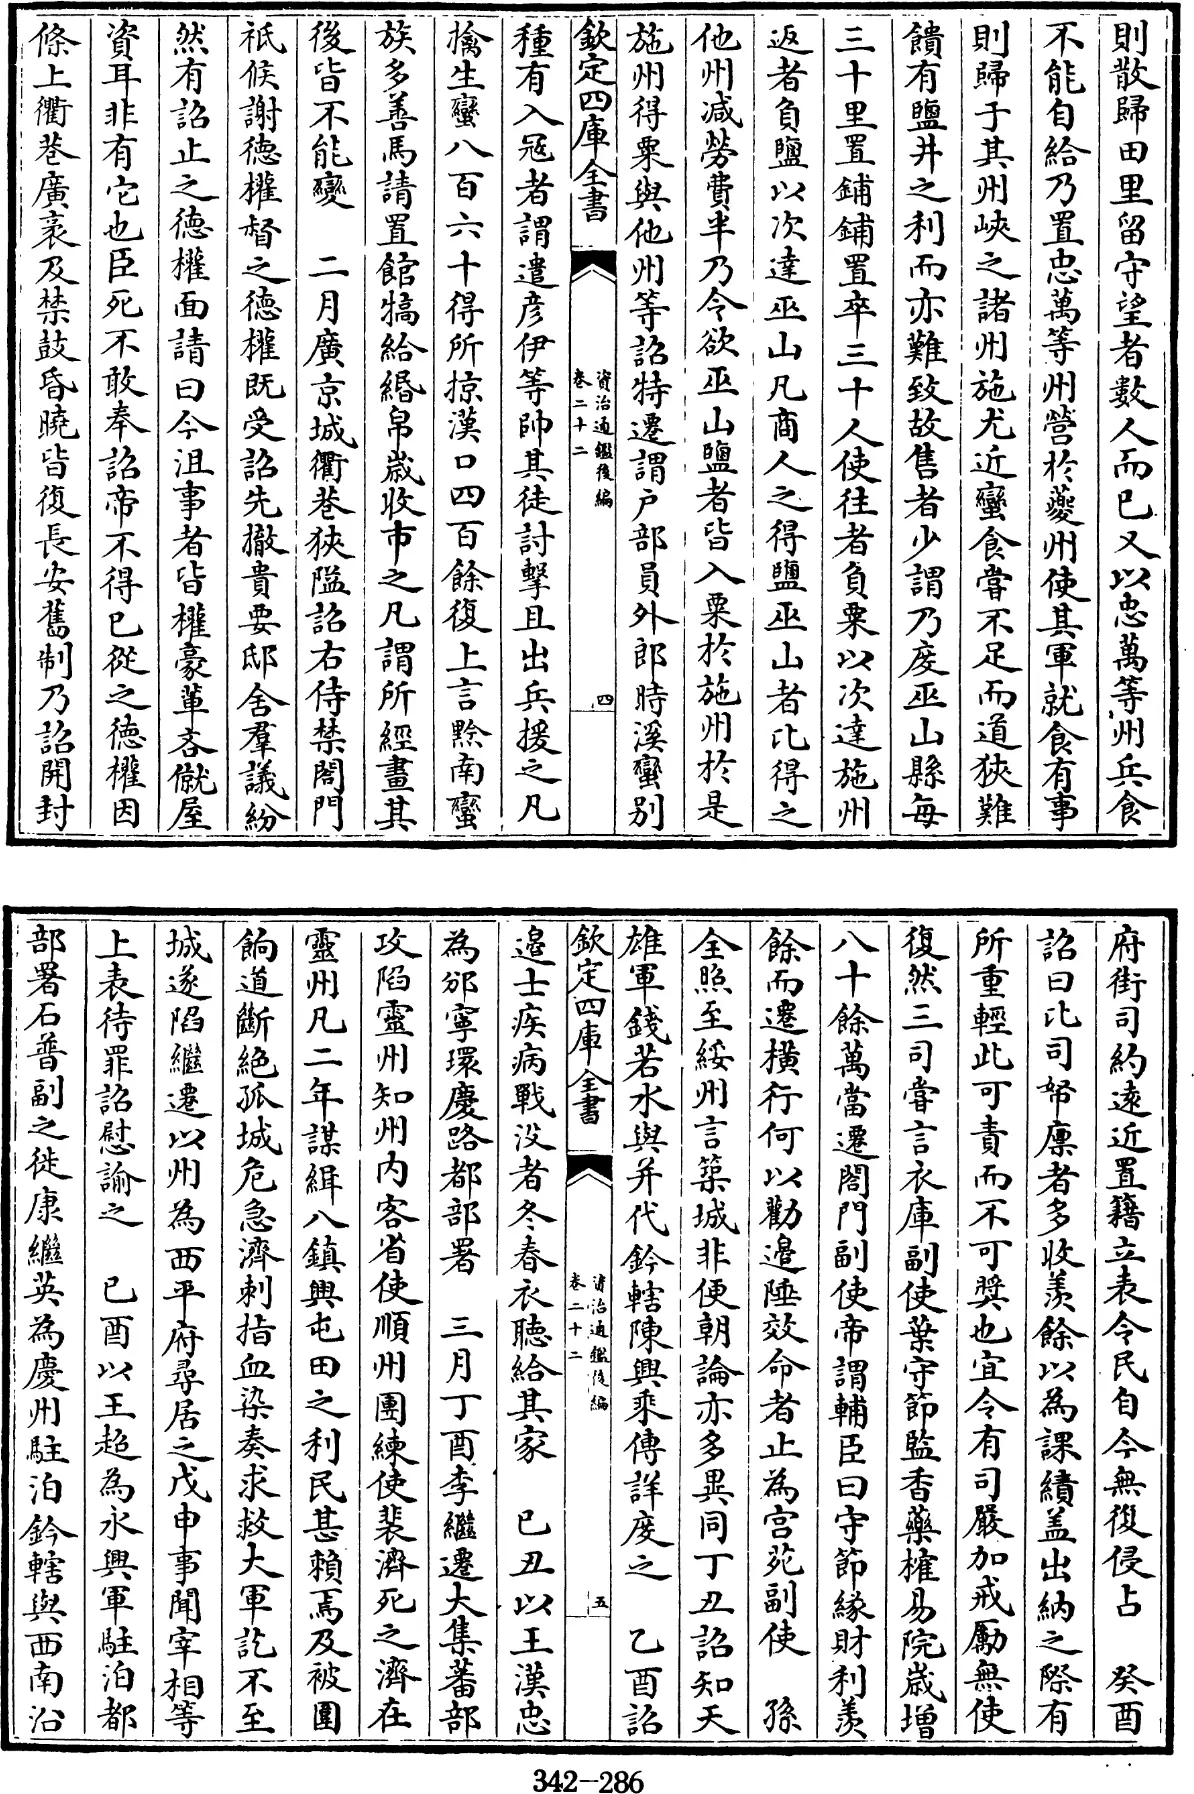 則散歸田里留守望者數人而已又以忠萬等州兵食
不能自給乃置忠萬等州營於夔州使其軍就食有事
則歸于其州峽之諸州施尤近蠻食嘗不足而道狹難
饋有鹽井之利而亦難致故售者少謂乃度巫山縣每
三十里置鋪鋪置卒三十人使往者負粟以次達施州
返者負鹽以次達巫山凡商人之得鹽巫山者比得之
他州减勞費半乃令欲巫山鹽者皆入粟於施州於是
施州得粟與他州等詔特遷謂户部員外郎時溪蠻别
欽定四庫全書
資治通鑑後編
卷二十二
四
種有入冦者謂遣彦伊等帥其徒討擊且出兵援之凡
擒生蠻八百六十得所掠漢口四百餘復上言黔南蠻
族多善馬請置館犒給緡帛歲收市之凡謂所經畫其
後皆不能變　二月廣京城衢巷狹隘詔右侍禁閤門
祇候謝德權督之德權既受詔先撤貴要邸舍羣議紛
然有詔止之德權面請曰今沮事者皆權豪軰吝僦屋
資耳非有它也臣死不敢奉詔帝不得已從之德權因
條上衢巷廣袤及禁鼓昏曉皆復長安舊制乃詔開封
府街司約遠近置籍立表令民自今無復侵占　癸酉
詔曰比司帑廪者多收羨餘以為課績盖出納之際有
所重輕此可責而不可奬也宜令有司嚴加戒勵無使
復然三司嘗言衣庫副使葉守節監香藥榷易院歲增
八十餘萬當遷閤門副使帝謂輔臣曰守節緣財利羨
餘而遷横行何以勸邉陲效命者止為宫苑副使　孫
全照至綏州言築城非便朝論亦多異同丁丑詔知天
雄軍錢若水與并代鈐轄陳興乘傳詳度之　乙酉詔
欽定四庫全書
資治通鑑後編
卷二十二
五
邉士疾病戰没者冬春衣聽給其家　己丑以王漢忠
為邠寧環慶路都部署　三月丁酉李繼遷大集蕃部
攻陷靈州知州内客省使順州團練使裴濟死之濟在
靈州凡二年謀緝八鎮興屯田之利民甚賴焉及被圍
餉道斷絶孤城危急濟刺指血染奏求救大軍訖不至
城遂陷繼遷以州為西平府尋居之戊申事聞宰相等
上表待罪詔慰諭之　己酉以王超為永興軍駐泊都
部署石普副之徙康繼英為慶州駐泊鈐轄與西南沿
342-286